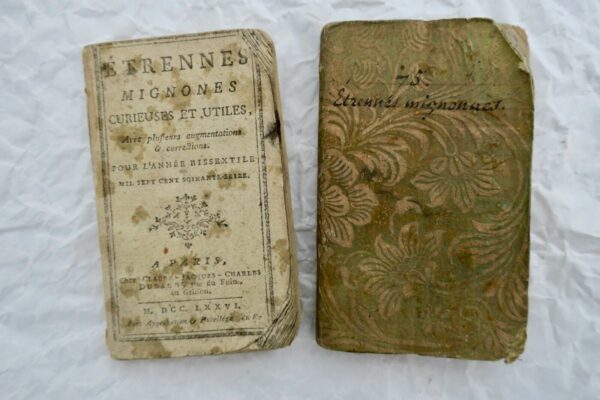 ÉTRENNES
MIGNONES
CURIEUSES ET UTILES,
Avec plusieurs augmentations
& corrections.
POUR L'ANNÉE BISSEXTILE
MIL SEPT CENT SOIXANTE-SEIZE.
A PARIS,
Chez CLAUDE-JACQUES-CHARLES
DURAND, rue du Foin,
au Griffon.
M. DCC. LXXVI.
Avec Approbation & Privilége du
75.
Etrennes mignonnes.